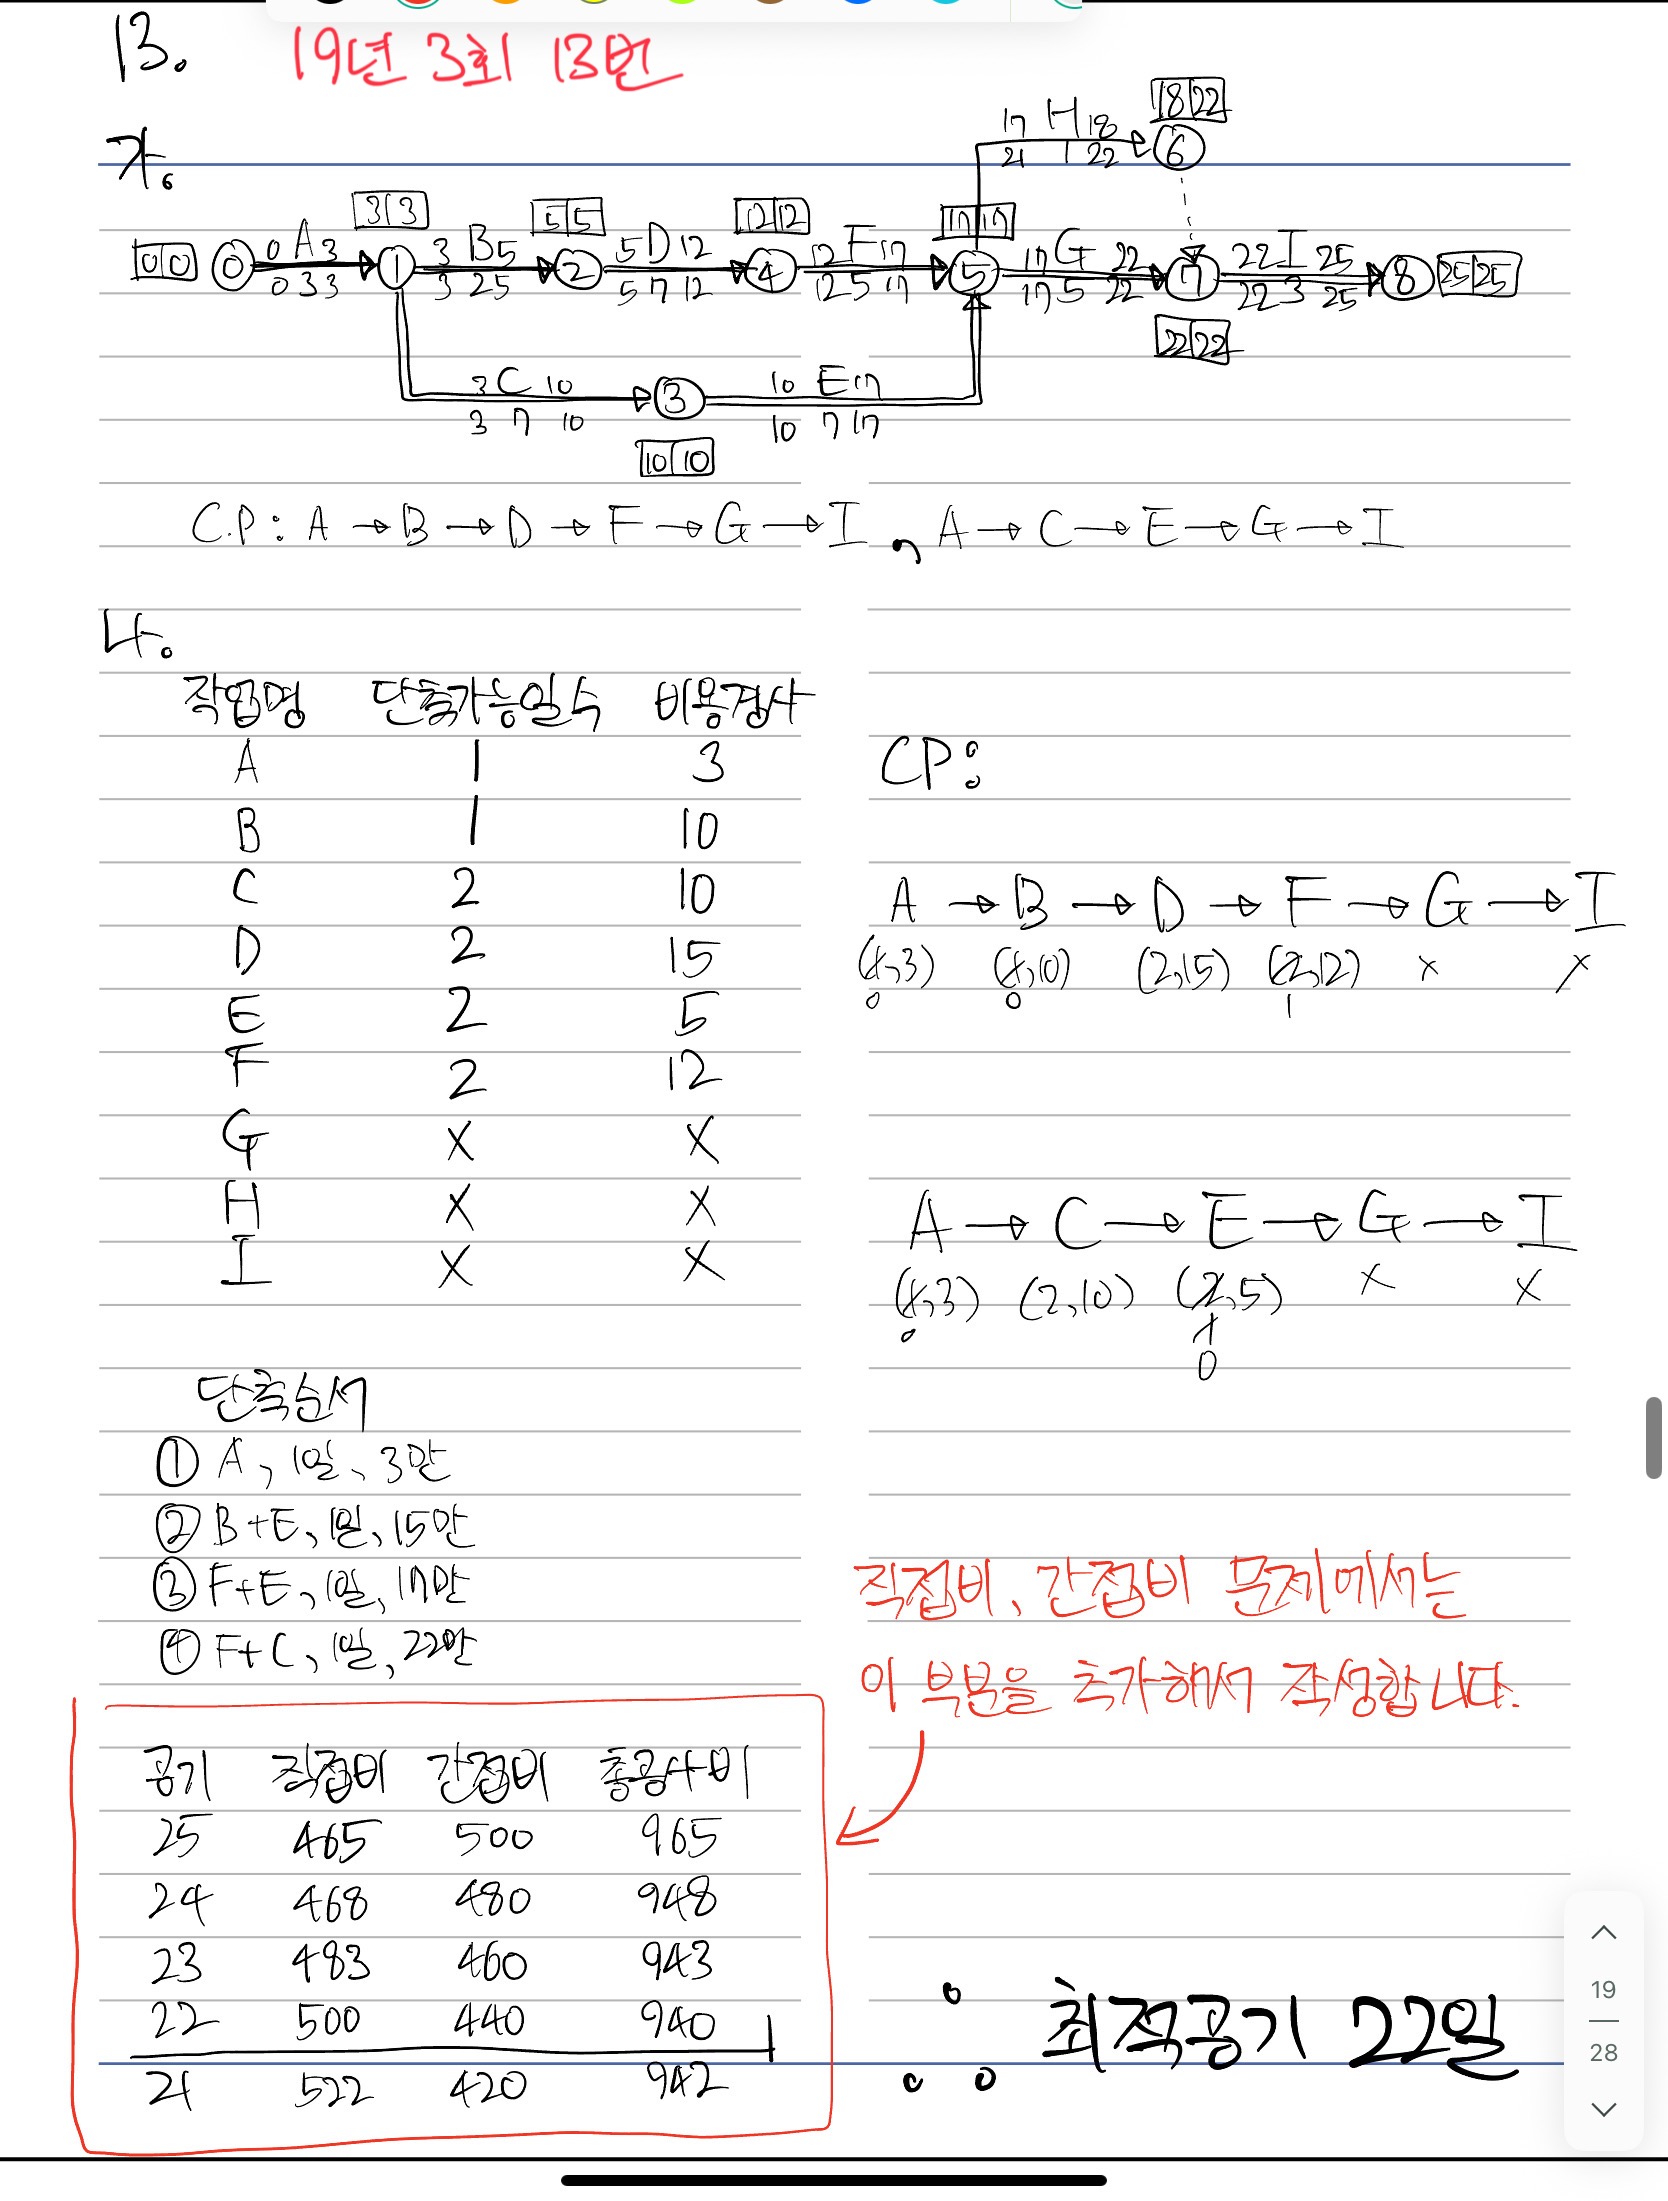 13. 19년 3회 13번
가.
18 22
17 H 18
21 1 22 6
3 3 5 5 12 12 17 17
0 0 0 0 A 3 1 3 B 5 2 5 D 12 4 12 F 17 5 17 G 22 7 22 I 25 8 25 25
0 3 3 3 2 5 5 7 12 12 5 17 17 5 22 22 3 25
22 22
3 C 10 3 10 E 17
3 7 10 10 7 17
10 10
C.P: A → B → D → F → G → I , A → C → E → G → I
나.
작업명 단축가능일수 비용경사
A 1 3
B 1 10
C 2 10
D 2 15
E 2 5
F 2 12
G X X
H X X
I X X
CP:
A → B → D → F → G → I
(1,3) (1,10) (2,15) (2,12) x x
0 0 1
A → C → E → G → I
(1,3) (2,10) (2,5) x x
0 1
0
단축순서
① A, 1일, 3만
② B+E, 1일, 15만
③ F+E, 1일, 17만
④ F+C, 1일, 22만
직접비, 간접비 문제에서는
이 부분을 추가해서 작성합니다.
공기 직접비 간접비 총공사비
25 465 500 965
24 468 480 948
23 483 460 943
22 500 440 940
21 522 420 942
∴ 최적공기 22일
19
28